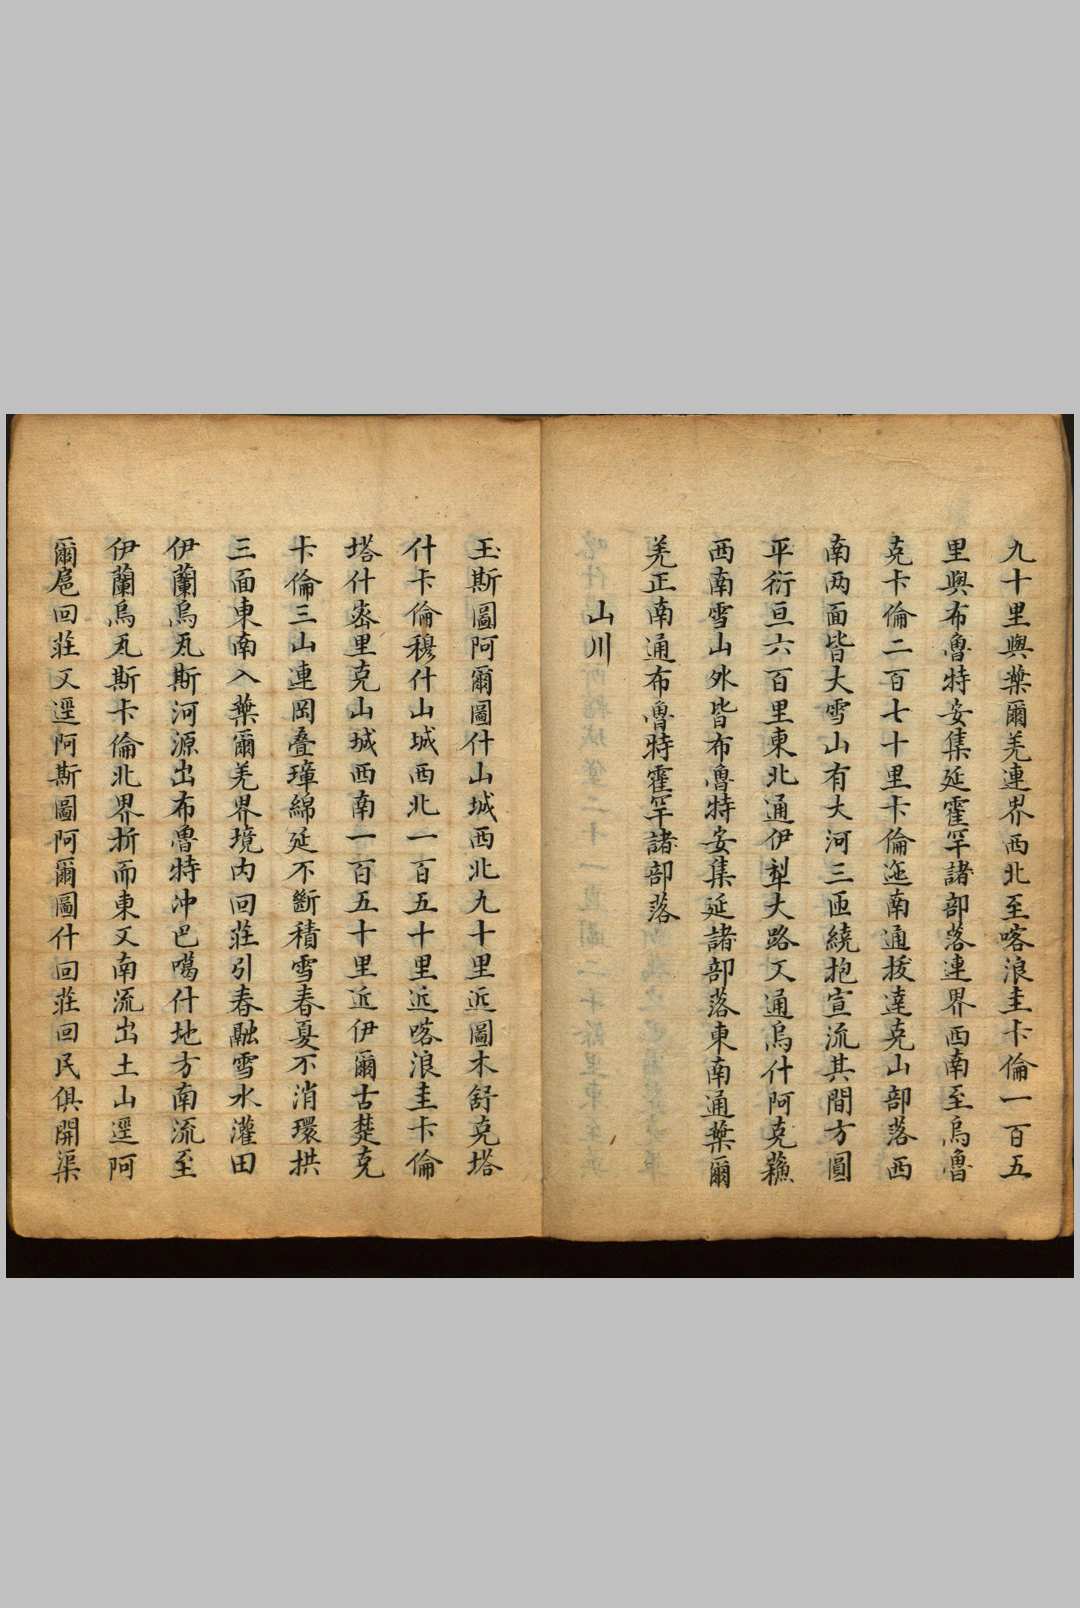 九十里與葉爾羌連界西北至喀浪圭卡倫一百五
里與布魯特安集延霍罕諸部落連界西南至烏魯
克卡倫二百七十里卡倫迤南通拔達克山部落西
南两面皆大雪山有大河三匝繞抱宣流其間方圓
平衍亘六百里東北通伊犁大路又通烏什阿克蘓
西南雪山外皆布魯特安集延諸部落東南通葉爾
羌正南通布魯特霍罕諸部落
山川
玉斯圖阿爾圖什山城西北九十里近圖木舒克塔
什卡倫穆什山城西北一百五十里近喀浪圭卡倫
塔什密里克山城西南一百五十里近伊爾古楚克
卡倫三山連岡叠璋綿延不斷積雪春夏不消環拱
三面東南入葉爾羌界境内回莊引春融雪水灌田
伊蘭烏瓦斯河源出布魯特冲巴噶什地方南流至
伊蘭烏瓦斯卡倫北界折而東又南流出土山逕阿
爾扈回莊又逕阿斯圖阿爾圖什回莊回民俱開渠